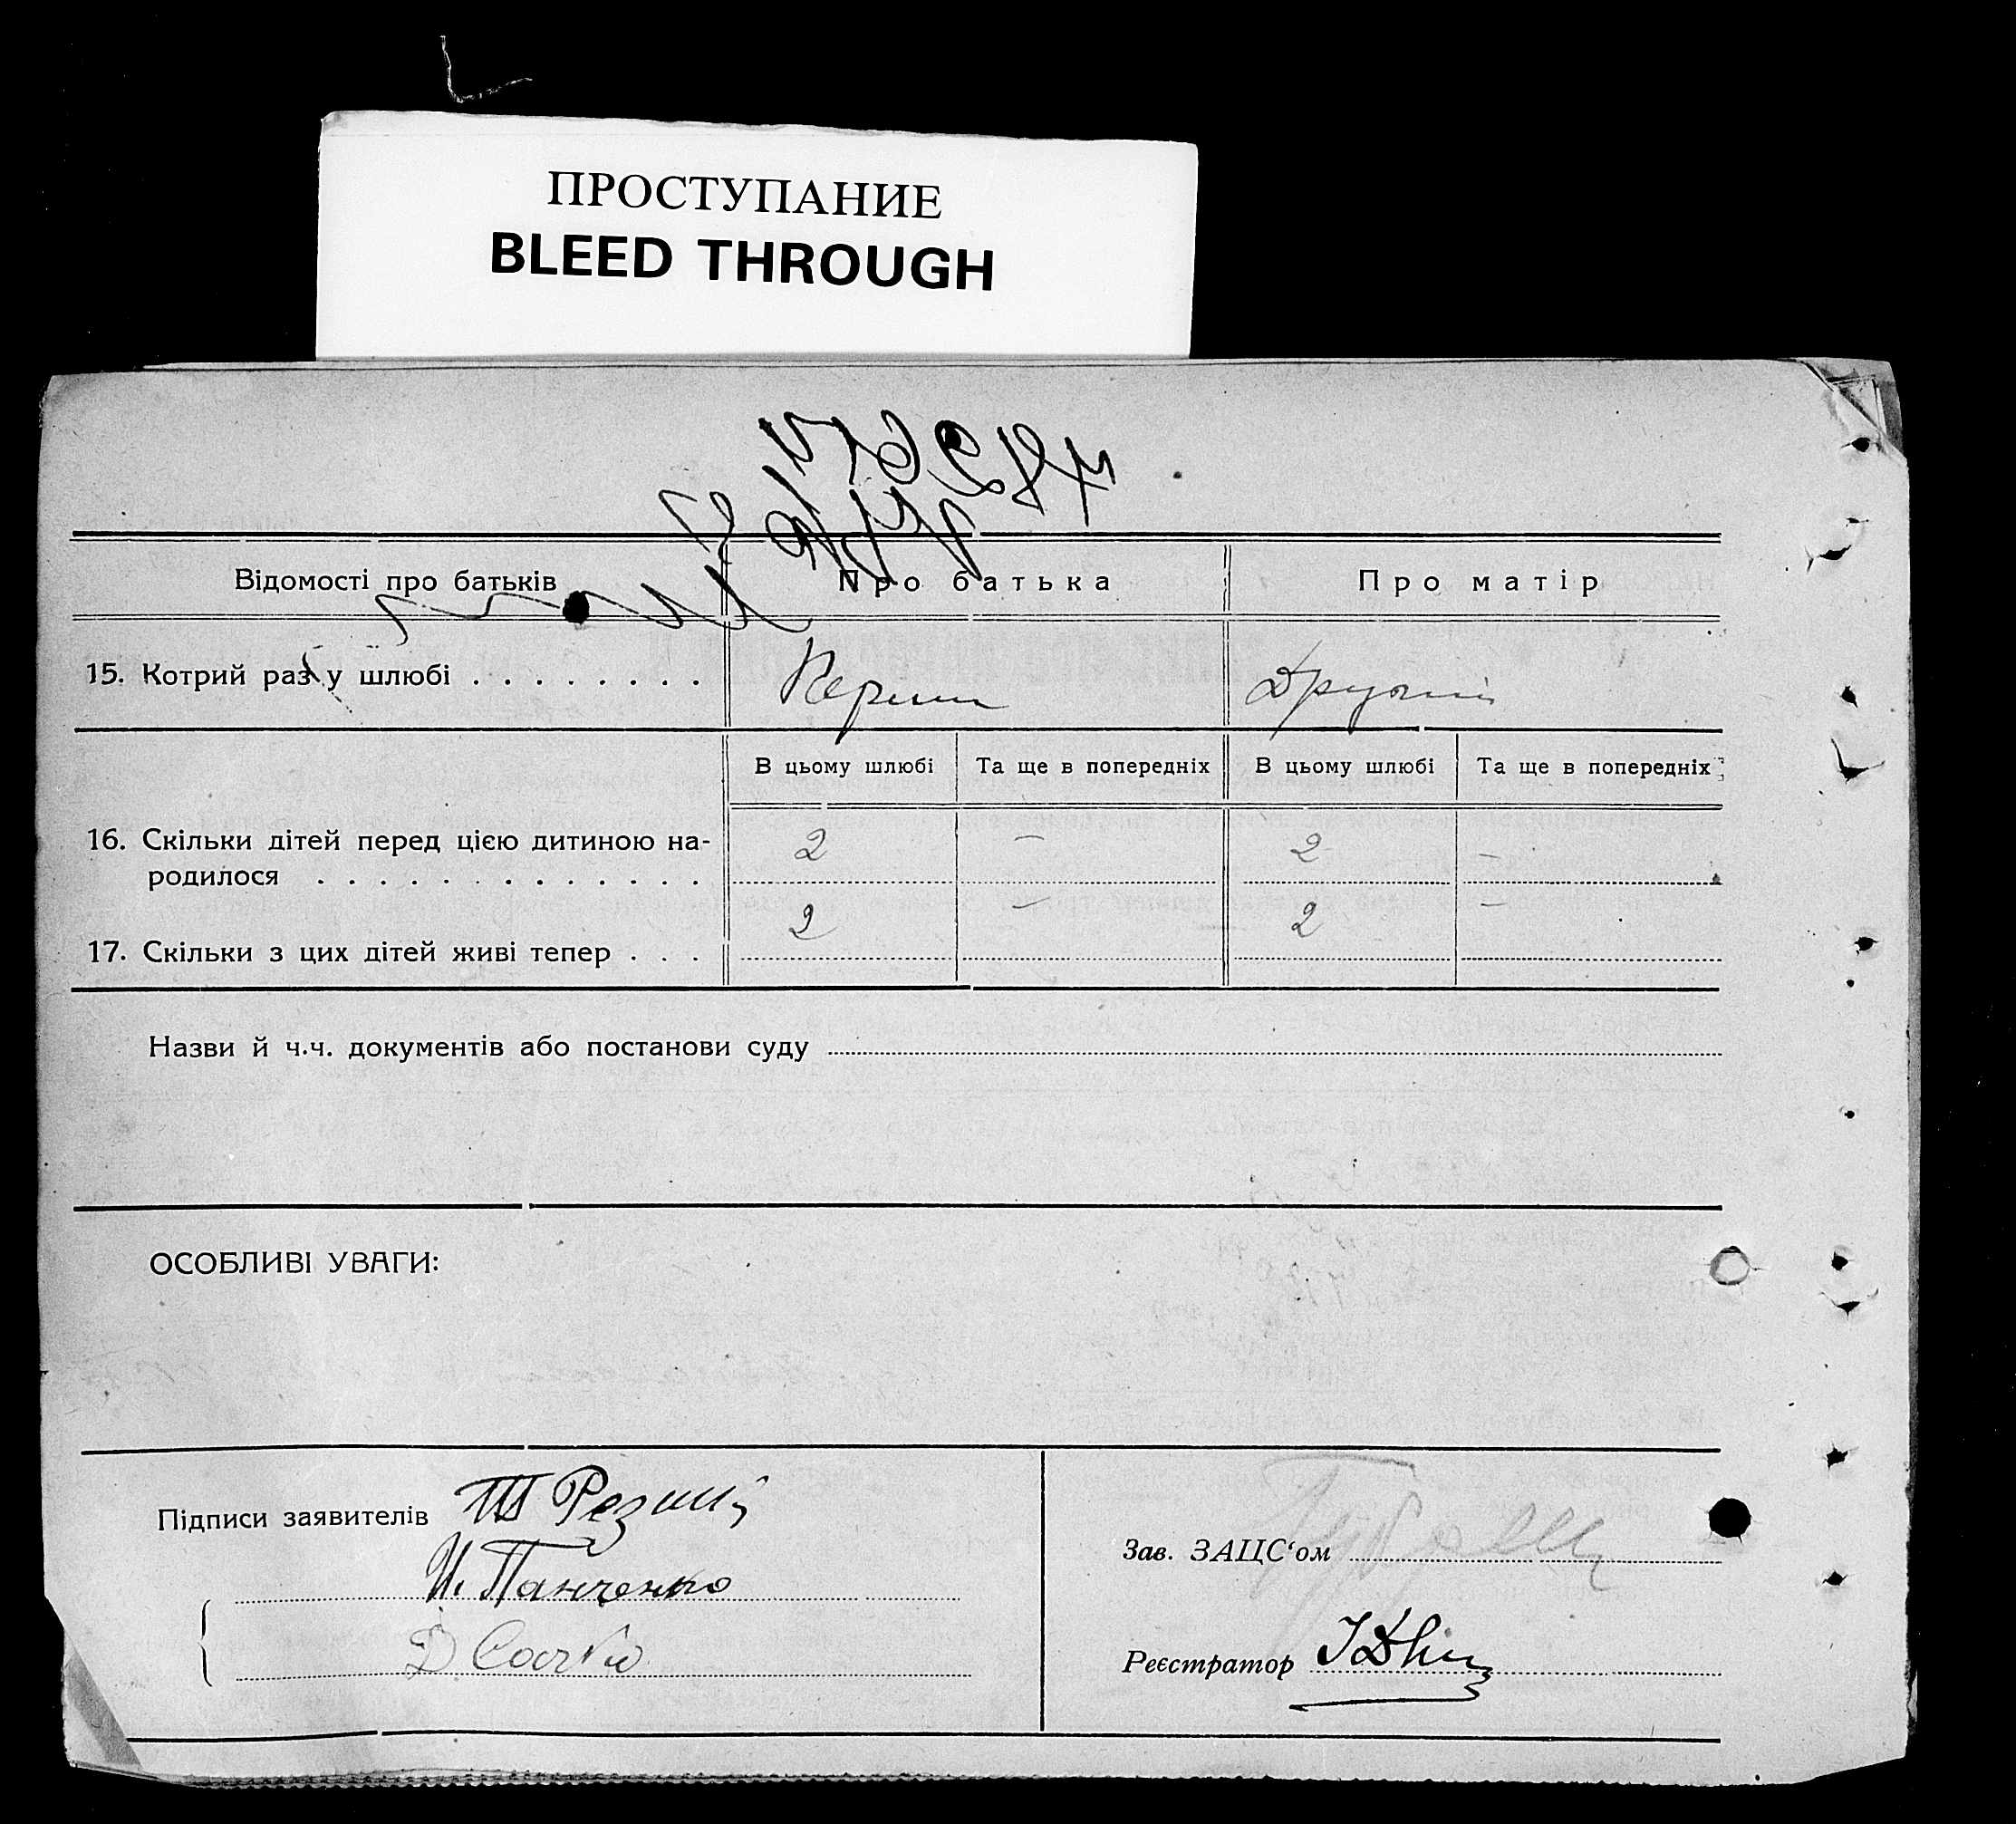 ПРОСТУПАНИЕ
BLEED THROUGH
Відомості про батьків Про батька Про матір
15. Котрий раз у шлюбі . . . . . . . . Перший Другий
В цьому шлюбі Та ще в попередніх В цьому шлюбі Та ще в попередніх
16. Скільки дітей перед цією дитиною на- 2 — 2 —
родилося . . . . . . . . . . . . .
17. Скільки з цих дітей живі тепер . . . 2 — 2 —
Назви й ч.ч. документів або постанови суду
ОСОБЛИВІ УВАГИ:
Підписи заявителів
И. Панченко
Зав. ЗАЦС‘ом
Реєстратор